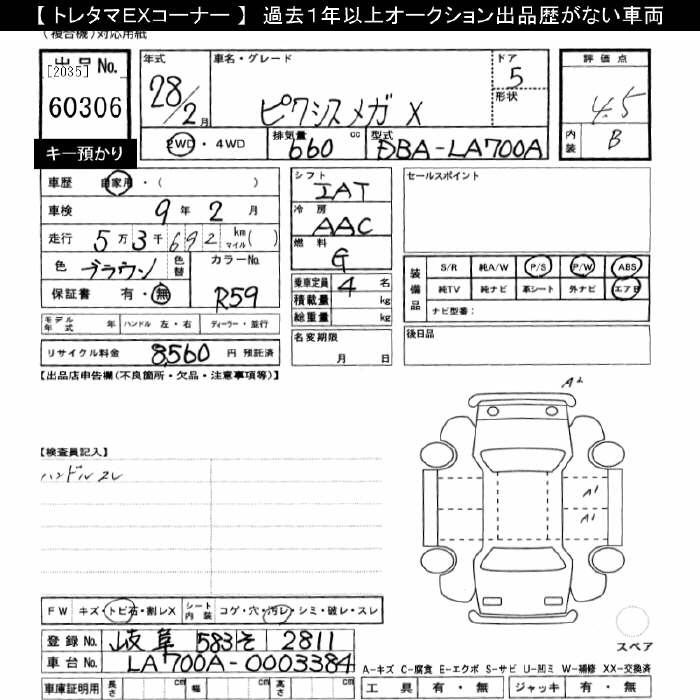 【 トレタマEXコーナー 】 過去1年以上オークション出品歴がない車両
(複合機)対応用紙
出品No.
[2035]
60306
キー預かり
年式
28/2月
車名・グレード
ピクシスメガ X
ドア
5
形状
評価点
4.5
内装
B
2WD・4WD
排気量
660 cc
型式
DBA-LA700A
車歴 自家用・( )
車検 9年 2月
走行 5万3千692 km マイル( )
色 ブラウン
色替
カラーNo.
R59
保証書 有・無
シフト
IAT
冷房
AAC
燃料
G
乗車定員 4 名
積載量 kg
総重量 kg
セールスポイント
装備品
S/R 純A/W P/S P/W ABS
純TV 純ナビ 革シート 外ナビ エアB
ナビ型番:
モデル年式 年 ハンドル 左・右 ディーラー・並行
リサイクル料金 8,560 円 預託済
名変期限
月 日
後日品
【出品店申告欄(不良箇所・欠品・注意事項等)】
【検査員記入】
ハンドルスレ
A2
A1
A1
FW キズ・トビ石・割レX シート内装 コゲ・穴・汚レ・シミ・破レ・スレ
登録No. 岐阜 583 そ 2811
車台No. LA700A-0003384
車庫証明用 長さ cm 幅 cm 高さ cm
スペア
A-キズ C-腐食 E-エクボ S-サビ U-凹ミ W-補修 XX-交換済
工具 有・無 ジャッキ 有・無